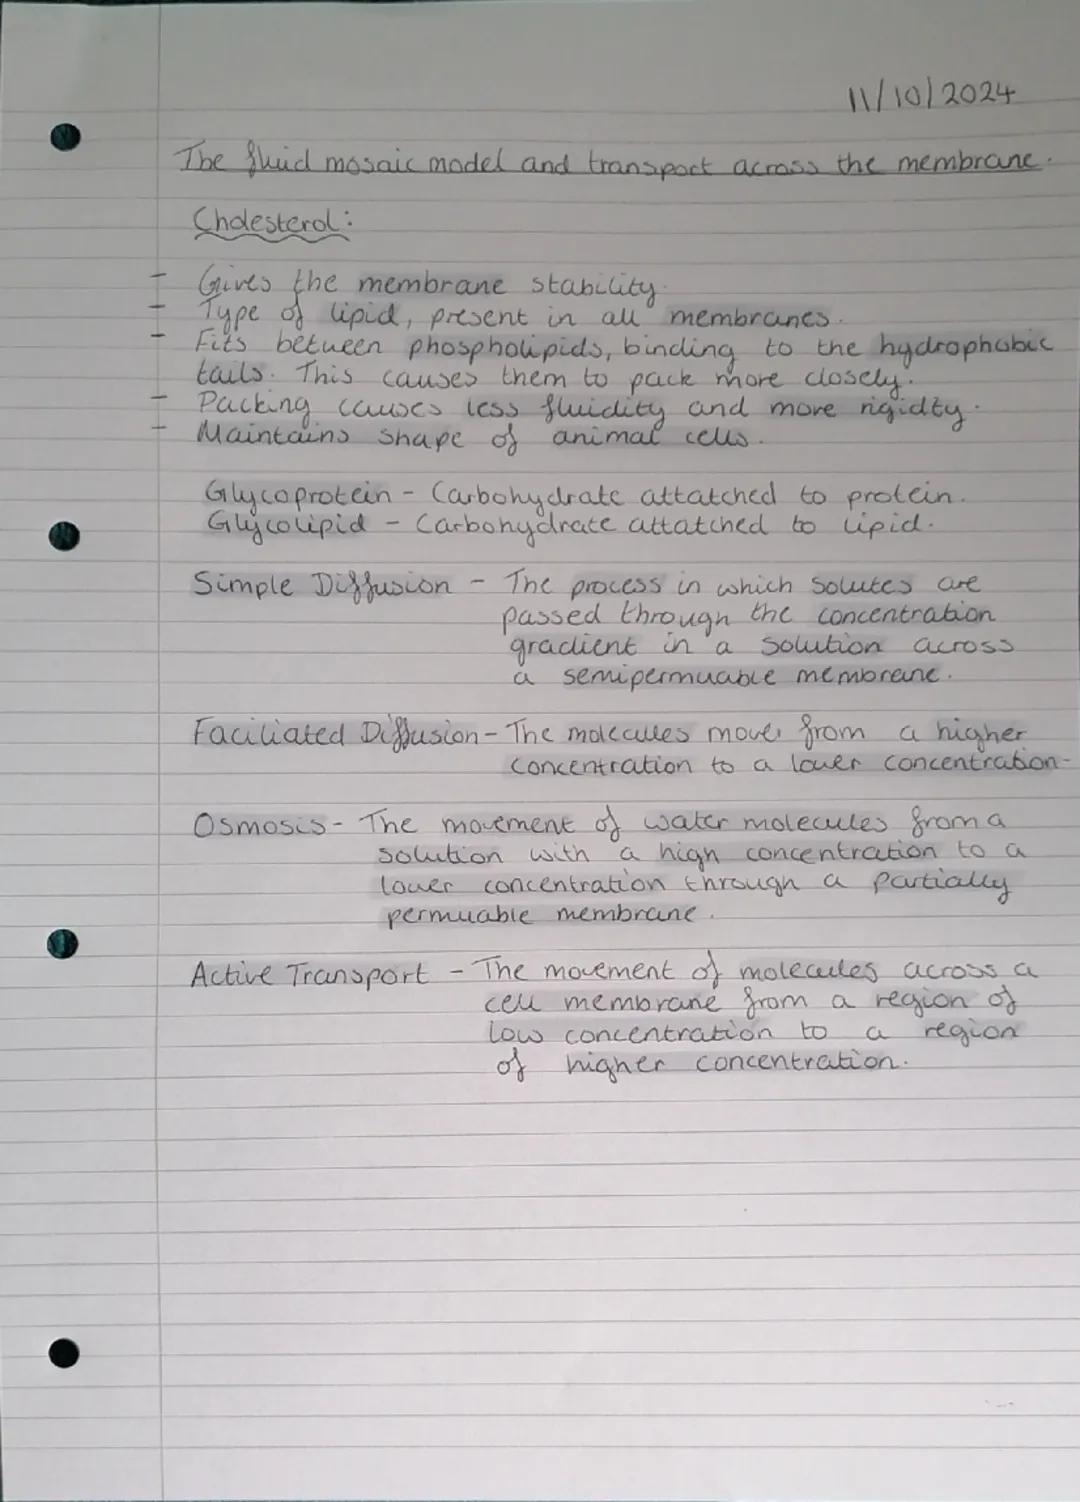 11/10/2024
The fluid mosaic model and transport across the membrane.
Cholesterol:
- Gives the membrane stability.
- Type of lipid, present in all membranes.
- Fits between phospholipids, binding to the hydrophobic
tails. This causes them to pack more closely.
- Packing causes less fluidity and more rigidty.
- Maintains shape of animal cells.
Glycoprotein - Carbohydrate attatched to protein.
Glycolipid - Carbohydrate attatched to lipid.
Simple Diffusion - The process in which solutes are
passed through the concentration
gradient in a solution across
a semipermuable membrane.
Faciliated Diffusion - The molecules move from a higher
concentration to a lower concentration.
Osmosis - The movement of water molecules from a
solution with a high concentration to a
lower concentration through a partially
permuable membrane.
Active Transport - The movement of molecules across a
cell membrane from a region of
low concentration to a region
of higher concentration.